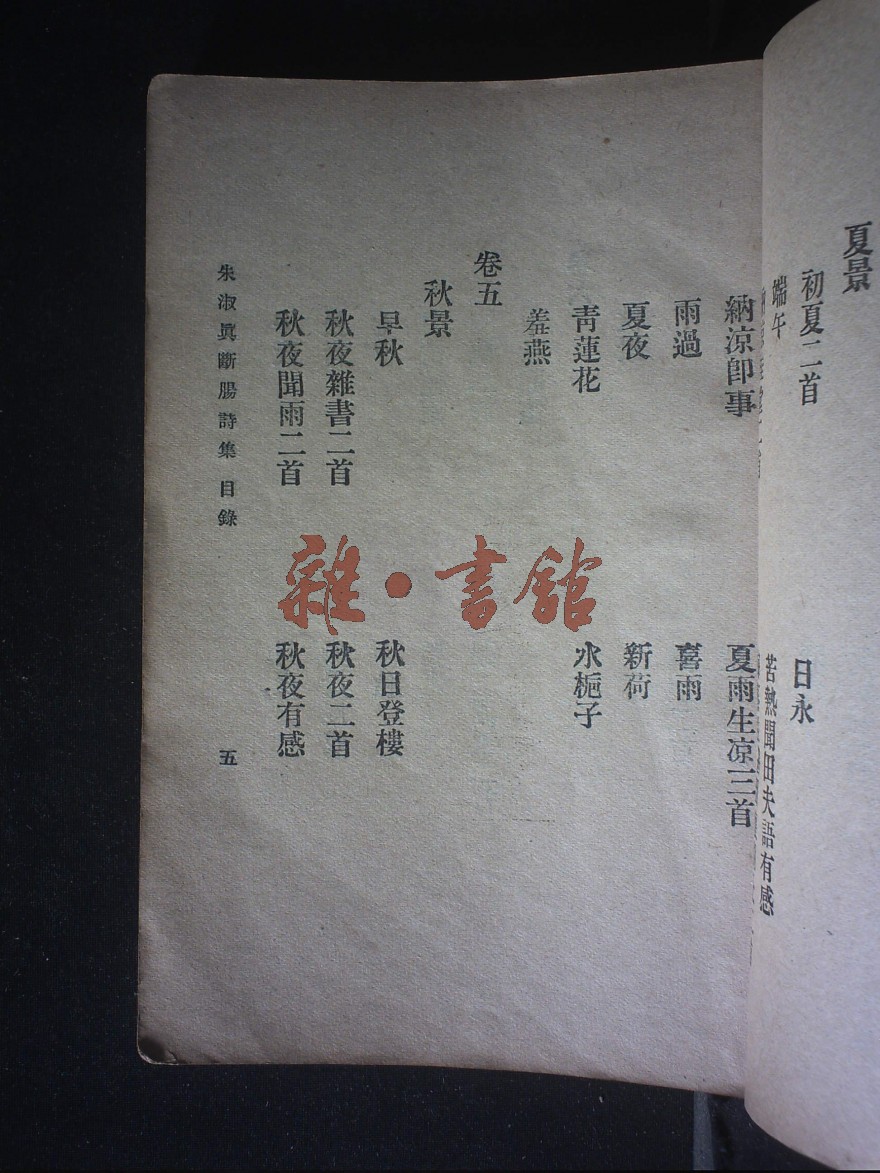 夏景
初夏二首
日永
端午
苦熱聞田夫語有感
納涼卽事
夏雨生凉三首
雨過
喜雨
夏夜
新荷
靑蓮花
水梔子
羞燕
卷五
秋景
早秋
秋日登樓
秋夜雜書二首
秋夜二首
秋夜聞雨二首
秋夜有感
朱淑眞斷腸詩集 目錄
五
雜·書館